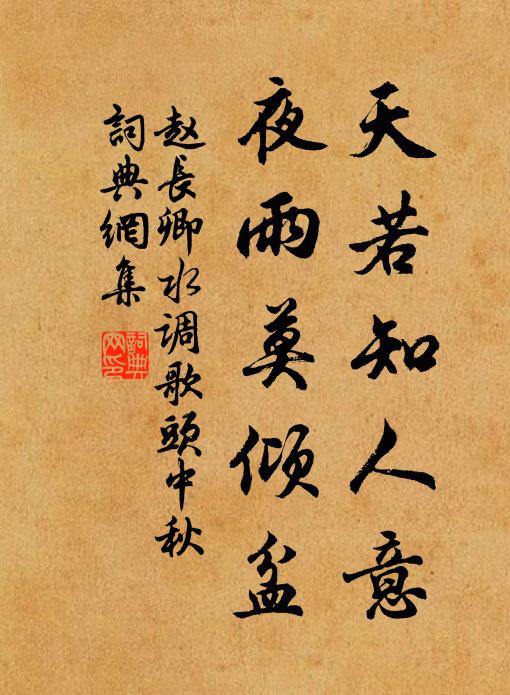 天若知人意
夜雨莫倾盆
赵長卿水调歌頭中秋
詞典網集
詞典
网印